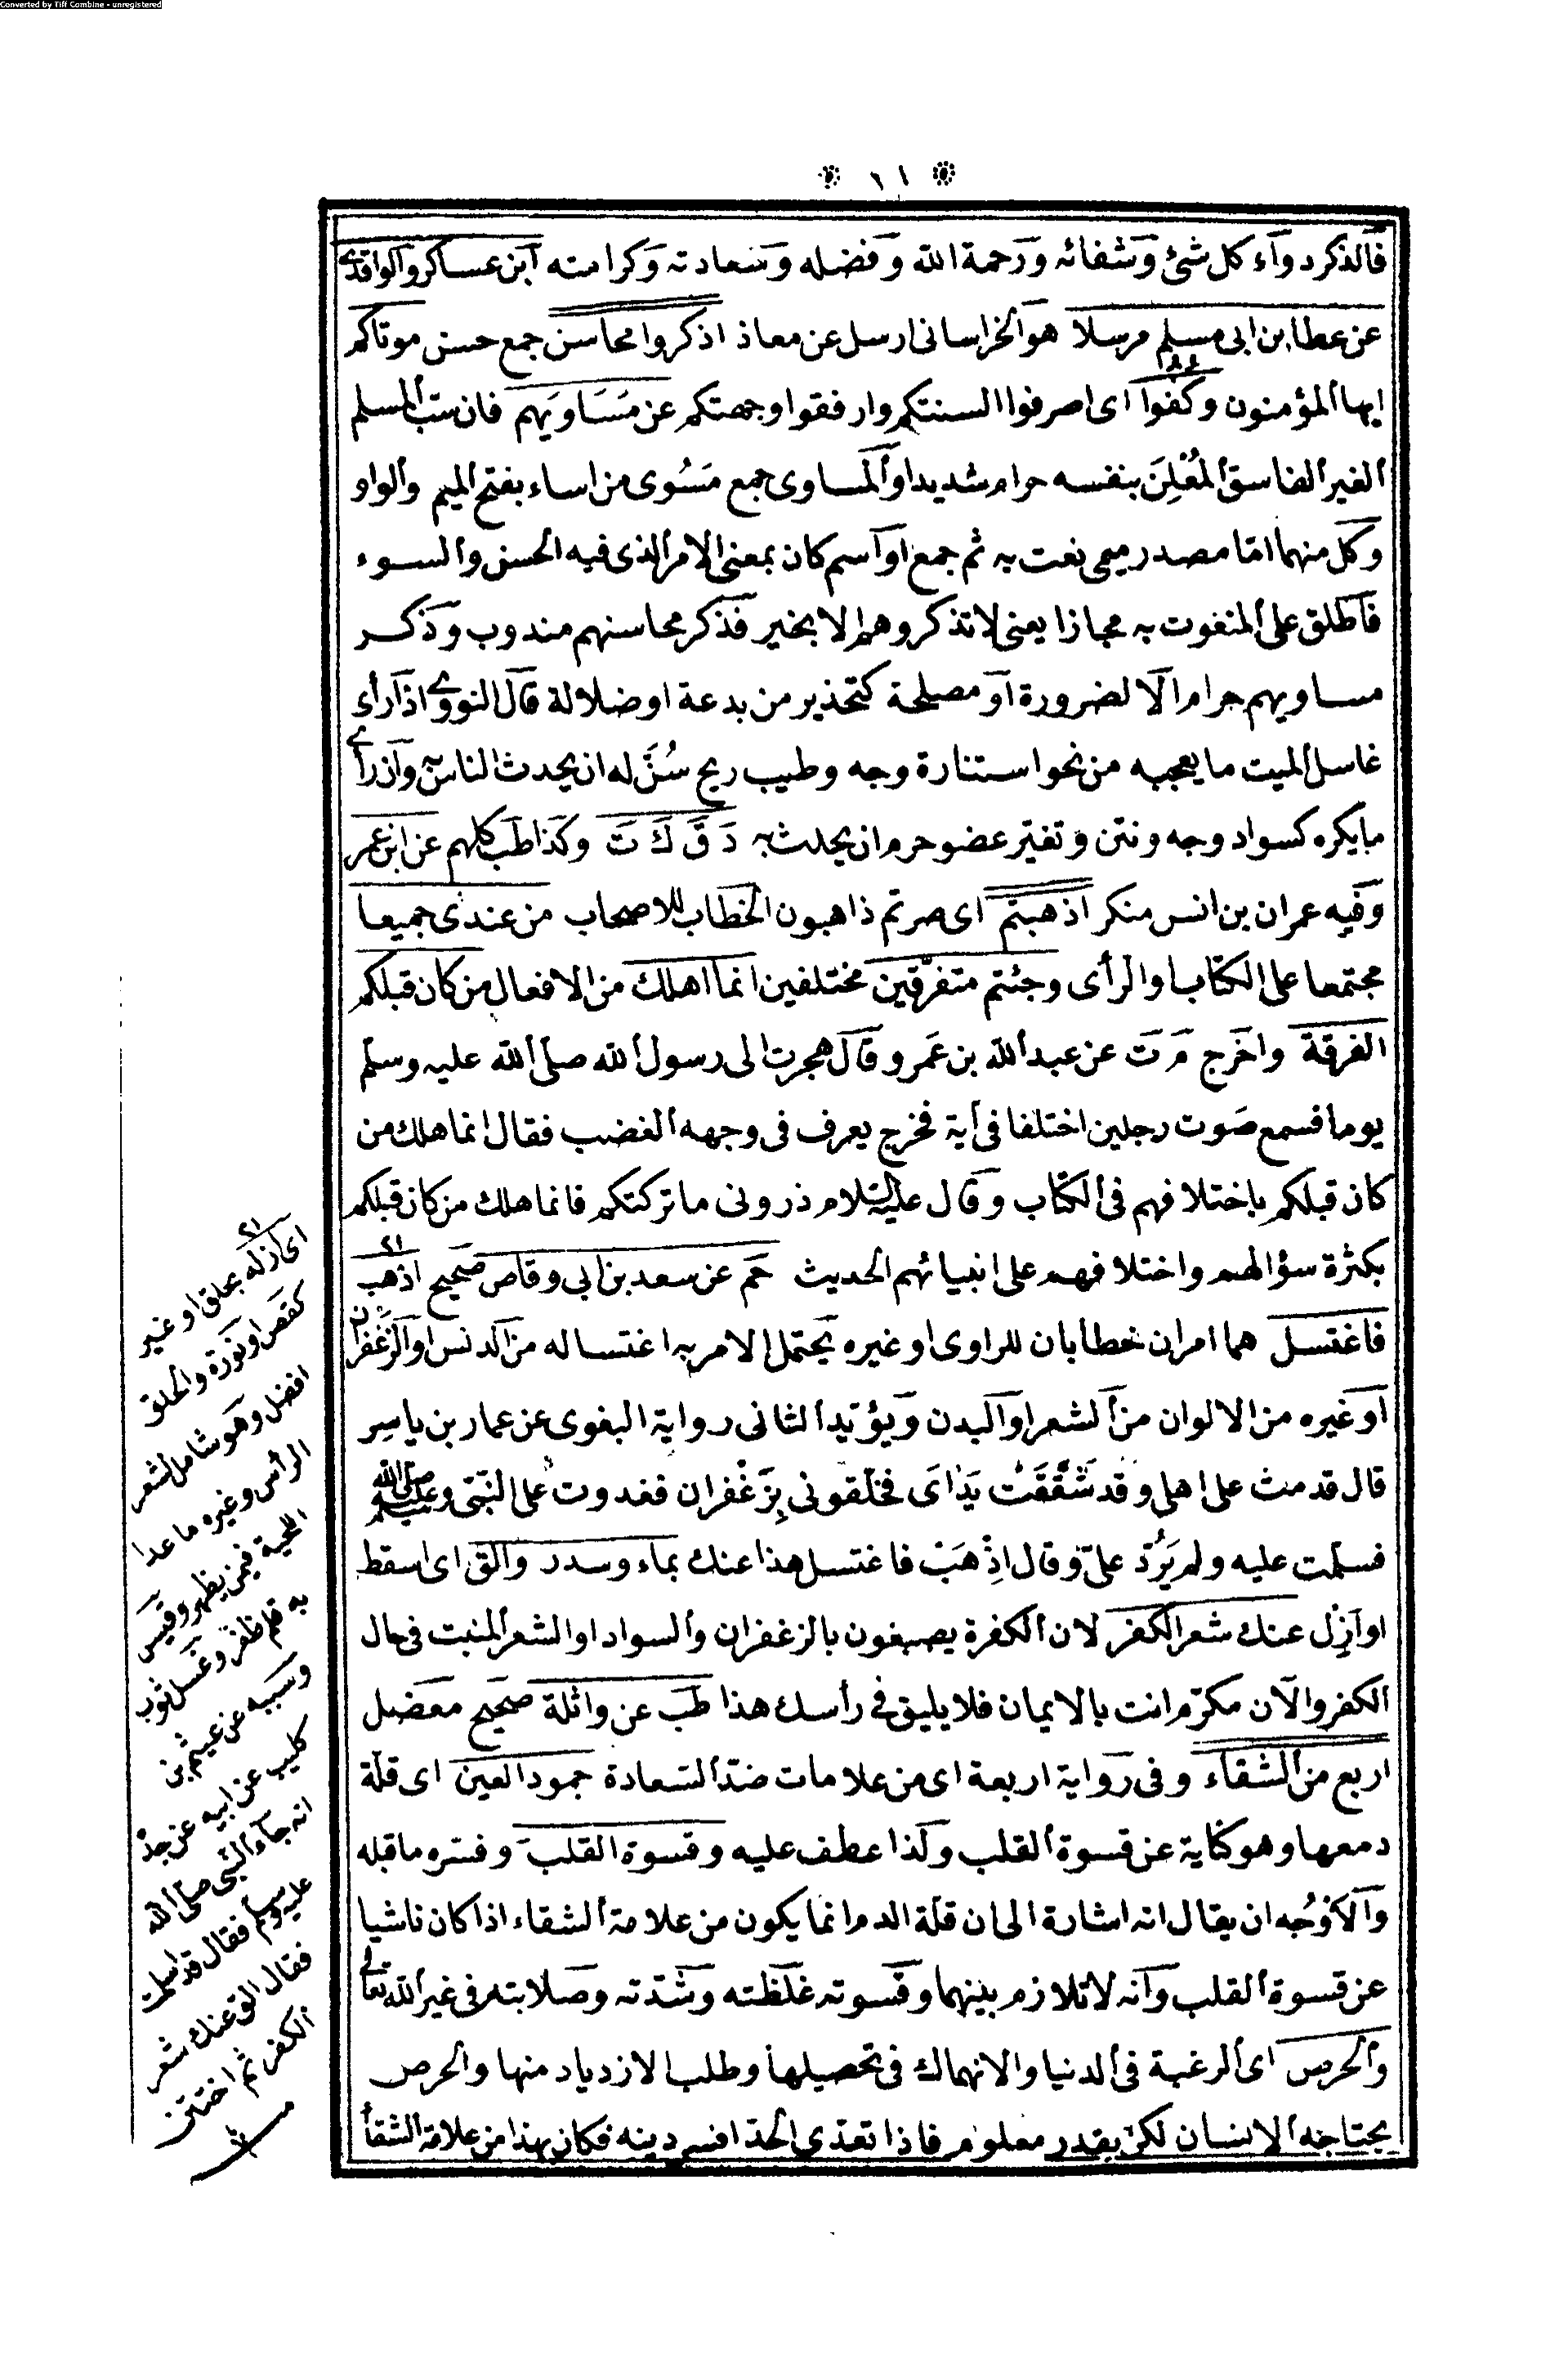 Converted by Tiff Combine - unregistered
* ١١ *
فالذكر دواء كل شئ وشفائه ورحمة الله وفضله وسعادته وكرامته ابن عساكر والواقدے
عن عطا بن ابى مسلم مرسلا هو الخراسانى ارسل عن معاذ اذكروا محاسن جمع حسن موتاكم
ايها المؤمنون وكفوا اى اصرفوا السنتكم وارفقوا وجهتكم عن مَسَاويهم فان سبّ المسلم
الغير الفاسق المُعْلِنَ بنفسه حرام شديدا والمساوى جمع مَسْوى من اساء بفتح الميم والواو
وكل منهما امّا مصدر ميمى نعت به ثم جمع او اسم كان بمعنى الامر الذى فيه الحسن والسوء
فاطلق على المنعوت به مجازا يعنى لا تذكروهم الا بخير فذكر محاسنهم مندوب وذكر
مساويهم حرام الا لضرورة او مصلحة كتحذير من بدعة او ضلالة قال النووے اذا رأى
غاسل الميت ما يعجبه من نحو استنارة وجه وطيب ريح سُنَّ له ان يحدث الناس به وان رأے
ما يكره كسواد وجه ونتن وتغير عضو حرم ان يحدث به دَ قَّ كَ تَ وكذا طب كلهم عن ابن عمر
وفيه عمران بن انس منكر اذهبتم اى صرتم ذاهبون الخطاب للاصحاب من عندى جميعا
مجتمعا على الكتاب والرأى وجئتم متفرّقين مختلفين انما اهلك من الافعال من كان قبلكم
الفرقة واخرج مَ تَ عن عبد الله بن عَمرو قال هجرت الى رسول الله صلى الله عليه وسلم
يوما فسمع صَوت رجلين اختلفا فى اية فخرج يعرف فى وجهه الغضب فقال انما هلك من
كان قبلكم باختلافهم فى الكتاب وقال عليه السلام ذرونى ما تركتكم فانما هلك من كان قبلكم
بكثرة سؤالهم واختلافهم على انبيائهم الحديث حَم عن سعد بن ابى وقاص صحيح اذهب
فاغتسل هما امران خطابان للراوى او غيره يحتمل الامر به اغتساله من الدنس او الزعفران
او غيره من الالوان من الشعر او البدن ويؤيّد الثانى رواية البغوى عن عمار بن ياسِر
قال قدمت على اهلى وقد شَقَّقَتْ يَدَاىَ فخلّقونى بِزَعْفران فغدوت على النبى صلى الله عليه وسلم
فسلمت عليه ولم يَرُدّ علىّ وقال اِذْهَبْ فاغتسل هذا عنك بماء وسدر والق اى اسقط
او اَزِل عنك شعر الكفر لان الكفرة يصبغون بالزعفران والسواد او الشعر المنبت فى حال
الكفر والآن مكرّم انت بالايمان فلا يليق فى رأسك هذا طَب عن واثلة صحيح معضل
اربع من الشقاء وفى رواية اربعة اى من علامات ضدّ السعادة جمود العين اى قلة
دمعها وهو كناية عن قسوة القلب ولذا عطف عليه وقسوة القلب وفسّره ما قبله
والاَوْجُه ان يقال انه اشارة الى ان قلة الدم انما يكون من علامة الشقاء اذا كان ناشيا
عن قسوة القلب وانه لا تلازم بينهما وقسوته غلظته وشدّته وصلابته فى غير الله تعالى
والحرص اى الرغبة فى الدنيا والانهماك فى تحصيلها وطلب الازدياد منها والحرص
يحتاجه الانسان لكن بقدر معلوم فاذا تعدّى الحدّ افسد دينه فكان بهذا من علامة الشقأ
اى ازله بحلق او غير
كقصّ او نَوْرَة والحلق
افضل وهو شامل لشعر
الرأس وغيره ما عدا
اللحية فيمن يظهر وقيس
به قلم ظفر وغسل ثوب
وسببه عن عيثم بن
كليب عن ابيه عن جدّ
انه جاء النبى صلى الله
عليه وسلم فقال قد اسلمت
فقال الق عنك شعر
الكفر ثم اختتن